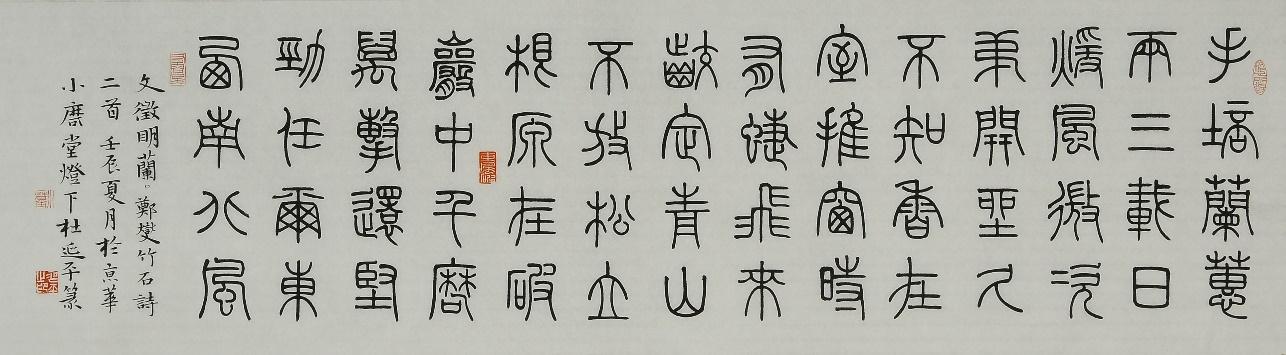 手培蘭蕙
兩三載日
煖風微次
弟開坐久
不知香在
室推窗時
有蜨飛來
齩定青山
不放松立
根原在破
巖中千磨
萬擊還堅
勁任爾東
西南北風
文徵明蘭、鄭燮竹石詩
二首 壬辰夏月於京華
小磨堂燈下杜延平篆